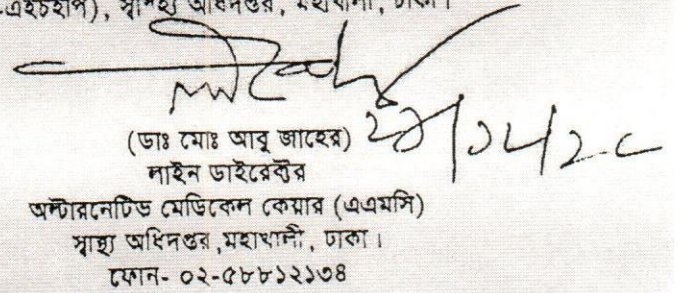 স্বাস্থ্য অধিদপ্তর, মহাখালী, ঢাকা।
(ডাঃ মোঃ আবু জাহের)
লাইন ডাইরেক্টর
অল্টারনেটিভ মেডিকেল কেয়ার (এএমসি)
স্বাস্থ্য অধিদপ্তর,মহাখালী, ঢাকা।
ফোন- ০২-৫৮৮১২১৩৪